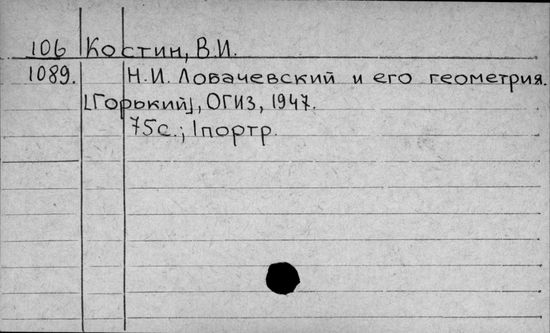 106 Костин, В.И.
1089. Н.И. Ловачевский и его геометрия.
[Горький], ОГИЗ, 1947.
75с.; 1портр.